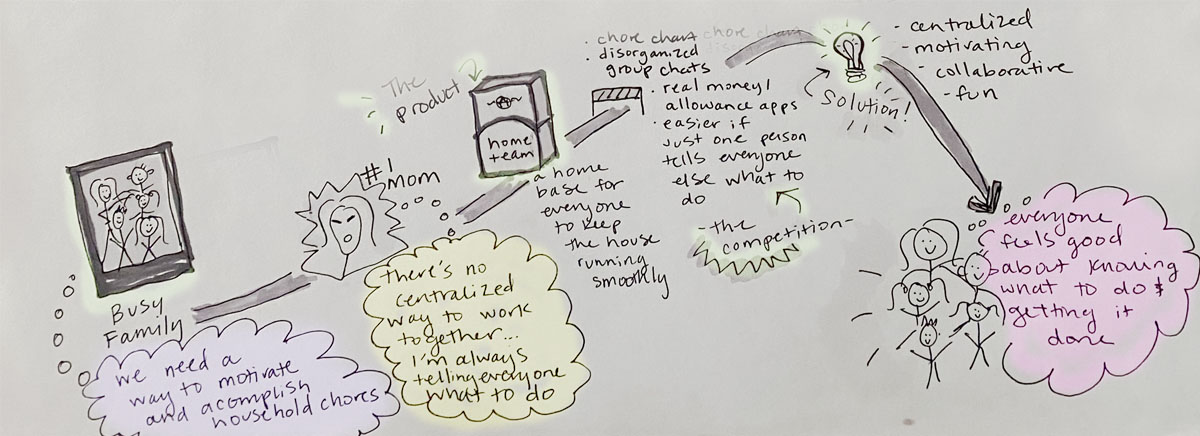 Busy
Family
we need a
way to motivate
and acomplish
household chores
#1
Mom
there's no
centralized
way to work
together...
I'm always
telling everyone
what to do
The
product
home
team
a home
base for
everyone
to keep
the house
running
smoothly
. chore chart
. disorganized
group chats
• real money/
allowance apps
• easier if
just one person
tells everyone
else what to
do
-the
competition-
Solution!
- centralized
- motivating
- collaborative
- fun
everyone
feels good
about knowing
what to do &
getting it
done